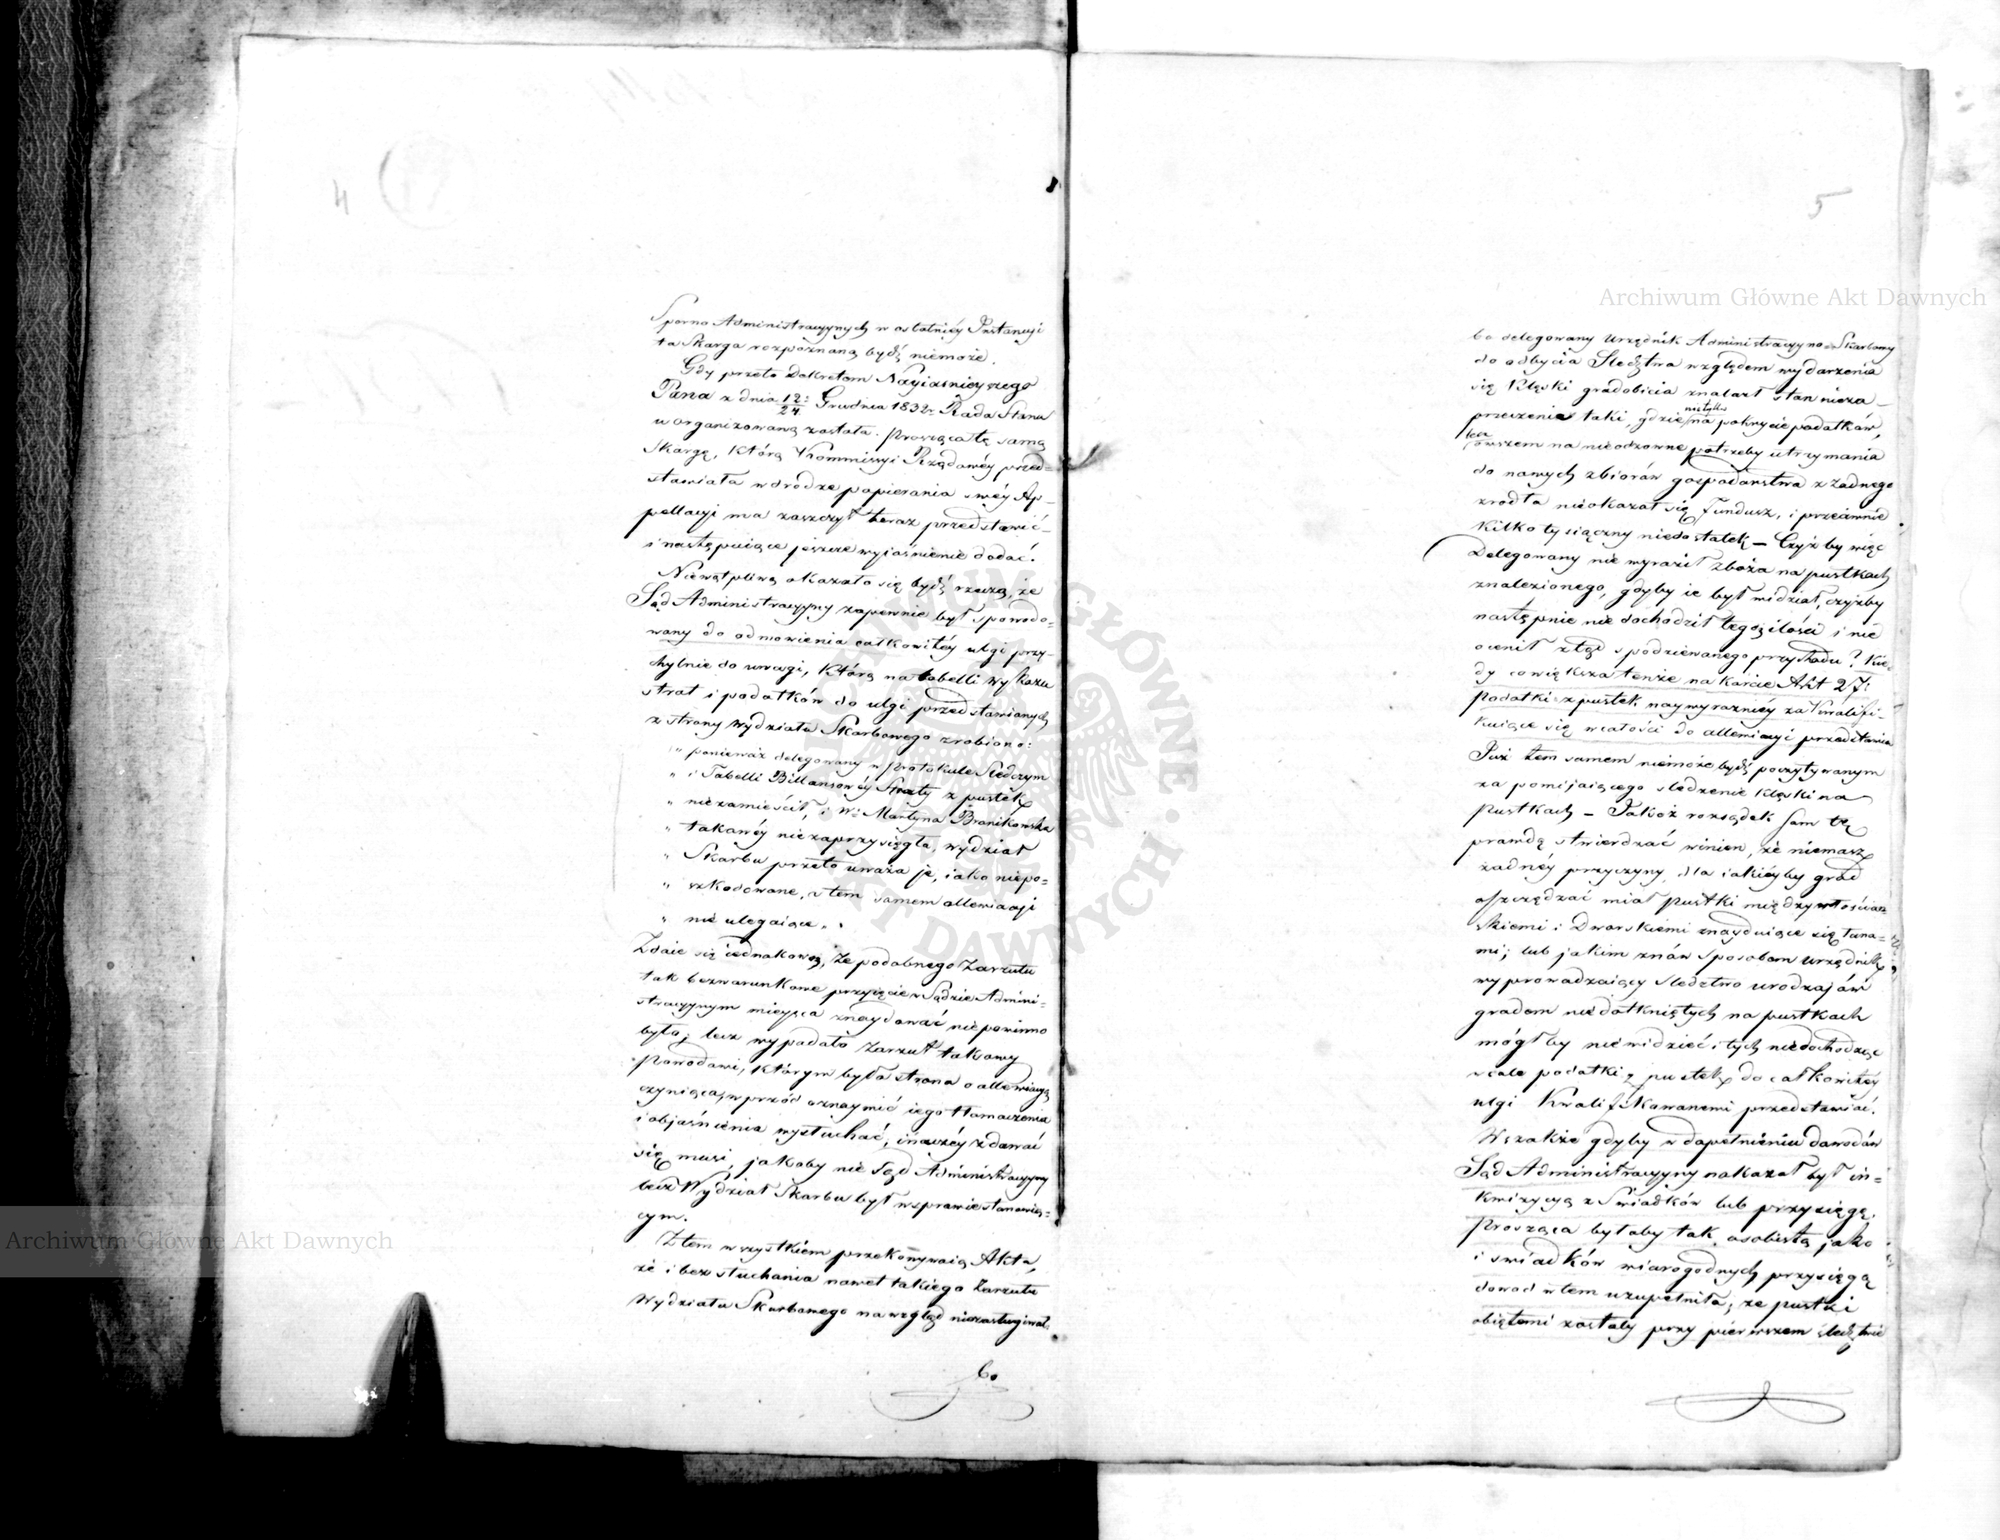 4
Sporno Administracyjnych w ostatniéy Instancyi
ta Skarga rozpoznaną bydź niemoże.
Gdy przeto Dekretem Nayiaśnieyszego
Pana z dnia 12/24 Grudnia 1832 r. Rada Stanu
uorganizowaną została. Prosząca tę samą
Skargę, którą Kommissyi Rządowéy przed=
stawiała w drodze popierania swéy Ap=
pellacyi ma zaszczyt teraz przedstawić
i następuiące jeszcze wyjaśnienie dodać.
Niewątpliwą okazało się bydź rzeczą, że
Sąd Administracyjny zapewnie był spowodo=
wany do odmówienia całkowitéy ulgi przy=
chylnie do uwagi, którą na tabelli wykazu
strat i podatków do ulgi przedstawionych
z strony Wydziału Skarbowego zrobiono:
" ponieważ delegowany w Protokule Sledczym
" i Tabelli Billansowéy Straty z pustek
" niezamieścił, i W: Martyna Bronikowska
" takowéy niezaprzysięgła, wydział
" Skarbu przeto uważa je, iako niepo=
" szkodowane, a tem samem allewiacyi
" nie ulegaiące. "
Zdaie się iednakowoż, że podobnego Zarzutu
tak bezwarunkowe przyięcie w Sądzie Admini=
stracyjnym mieysca znaydować niepowinno
było; lecz wypadało Zarzut takowy
Powodowi, którym była strona o allewiacyą
czyniąca, wprzód oznaymić iego tłomaczenia
i objaśnienia wysłuchać, inaczéy zdawać
się musi, jakoby nie Sąd Administracyjny
lecz Wydział Skarbu był w sprawie stanowią=
cym.
Z tem wszystkiem przekonywaią Akta,
że i bez słuchania nawet takiego Zarzutu
Wydziału Skarbowego na wzgląd niezasługiwał,
bo
5
bo delegowany Urzędnik Administracyjno=Skarbowy
do odbycia Sledztwa względem wydarzenia
się Klęski gradobicia znalazł stan nieza=
przeczenie taki, gdzie nietylko na pokrycie podatków,
lecz owszem na nieodzowne potrzeby utrzymania
do nowych zbiorów gospodarstwa z żadnego
zrodła nieokazał się Fundusz, i przeciwnie
Kilkotysiączny niedostatek – Czyż by więc
Delegowany nie wyraził zboża na pustkach
znalezionego, gdyby ie był widział, czyżby
następnie nie dochodził tegoż ilości i nie
ocenił ztąd spodziewanego przychodu? Kie=
dy co większa tenże na karcie Akt 27:
Podatki z pustek naywyrazniey za Kwalifi=
kuiące się w całości do allewiacyi przedstawia
Już tem samem niemoże bydź poczytywanym
za pomijaiącego sledzenie Klęski na
Pustkach – Jakoż rozsądek sam tę
prawdę stwierdzać winien, że niemasz
żadnéy przyczyny, dla iakiéyby grad
oszczędzać miał pustki między włościań=
skiemi i Dworskiemi znayduiące się łana=
mi; lub jakim znów sposobem urzędnik
wyprowadzaiący sledztwo urodzajów
gradem niedotkniętych na pustkach
mógłby niewidzieć i tych niedochodząc
wcale podatki z pustek do całkowitéy
ulgi Kwalifikowanemi przedstawiać.
Wszakże gdyby w dopełnieniu dowodów
Sąd Administracyjny nakazał był in=
kwizycyą z Swiadków lub przysięgę,
Prosząca byłaby tak osobistą jako
i swiadków wiarogodnych przysięgą
dowod w tem uzupełniła, że pustki
obiętemi zostały przy pierwszem sledztwie
Archiwum Główne Akt Dawnych
Archiwum Główne Akt Dawnych
ARCHIWUM GŁÓWNE AKT DAWNYCH